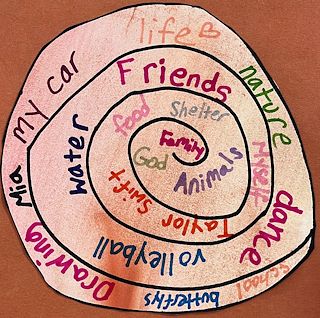 life B
Friends
nature
my car
food
Shelter
Family
God
Animals
Water
Mia
Taylor Swift
Myself
dance
volleyball
Drawing
butterflys
school